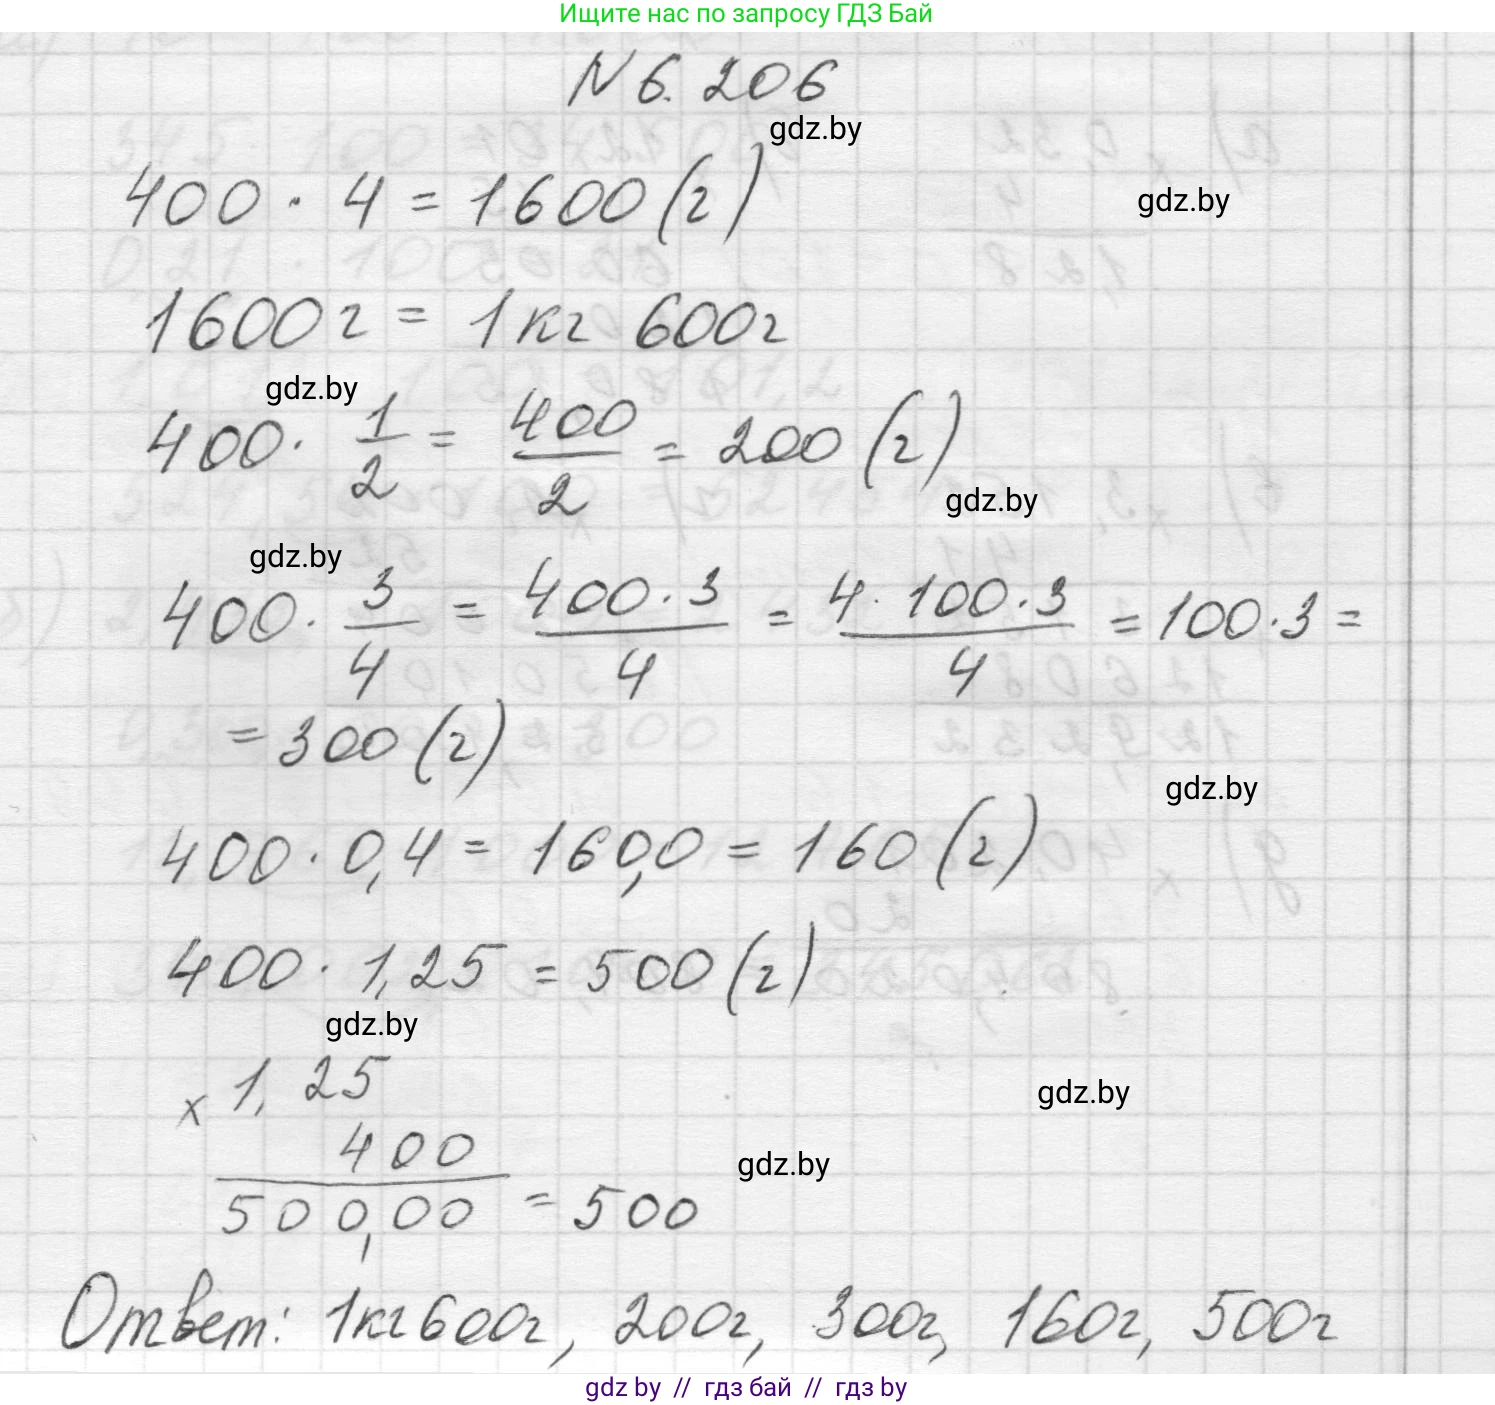 Ищите нас по запросу ГДЗ Бай
N 6.206
gdz.by
400 · 4 = 1600 (г)
gdz.by
1600 г = 1 кг 600 г
gdz.by
400 · 1/2 = 400/2 = 200 (г)
gdz.by
gdz.by
400 · 3/4 = 400 · 3/4 = 4 · 100 · 3/4 = 100 · 3 =
= 300 (г)
gdz.by
400 · 0,4 = 160,0 = 160 (г)
400 · 1,25 = 500 (г)
gdz.by
× 1,25
gdz.by
400
gdz.by
500,00 = 500
Ответ: 1 кг 600г, 200г, 300г, 160г, 500г
gdz by // гдз бай // гдз by